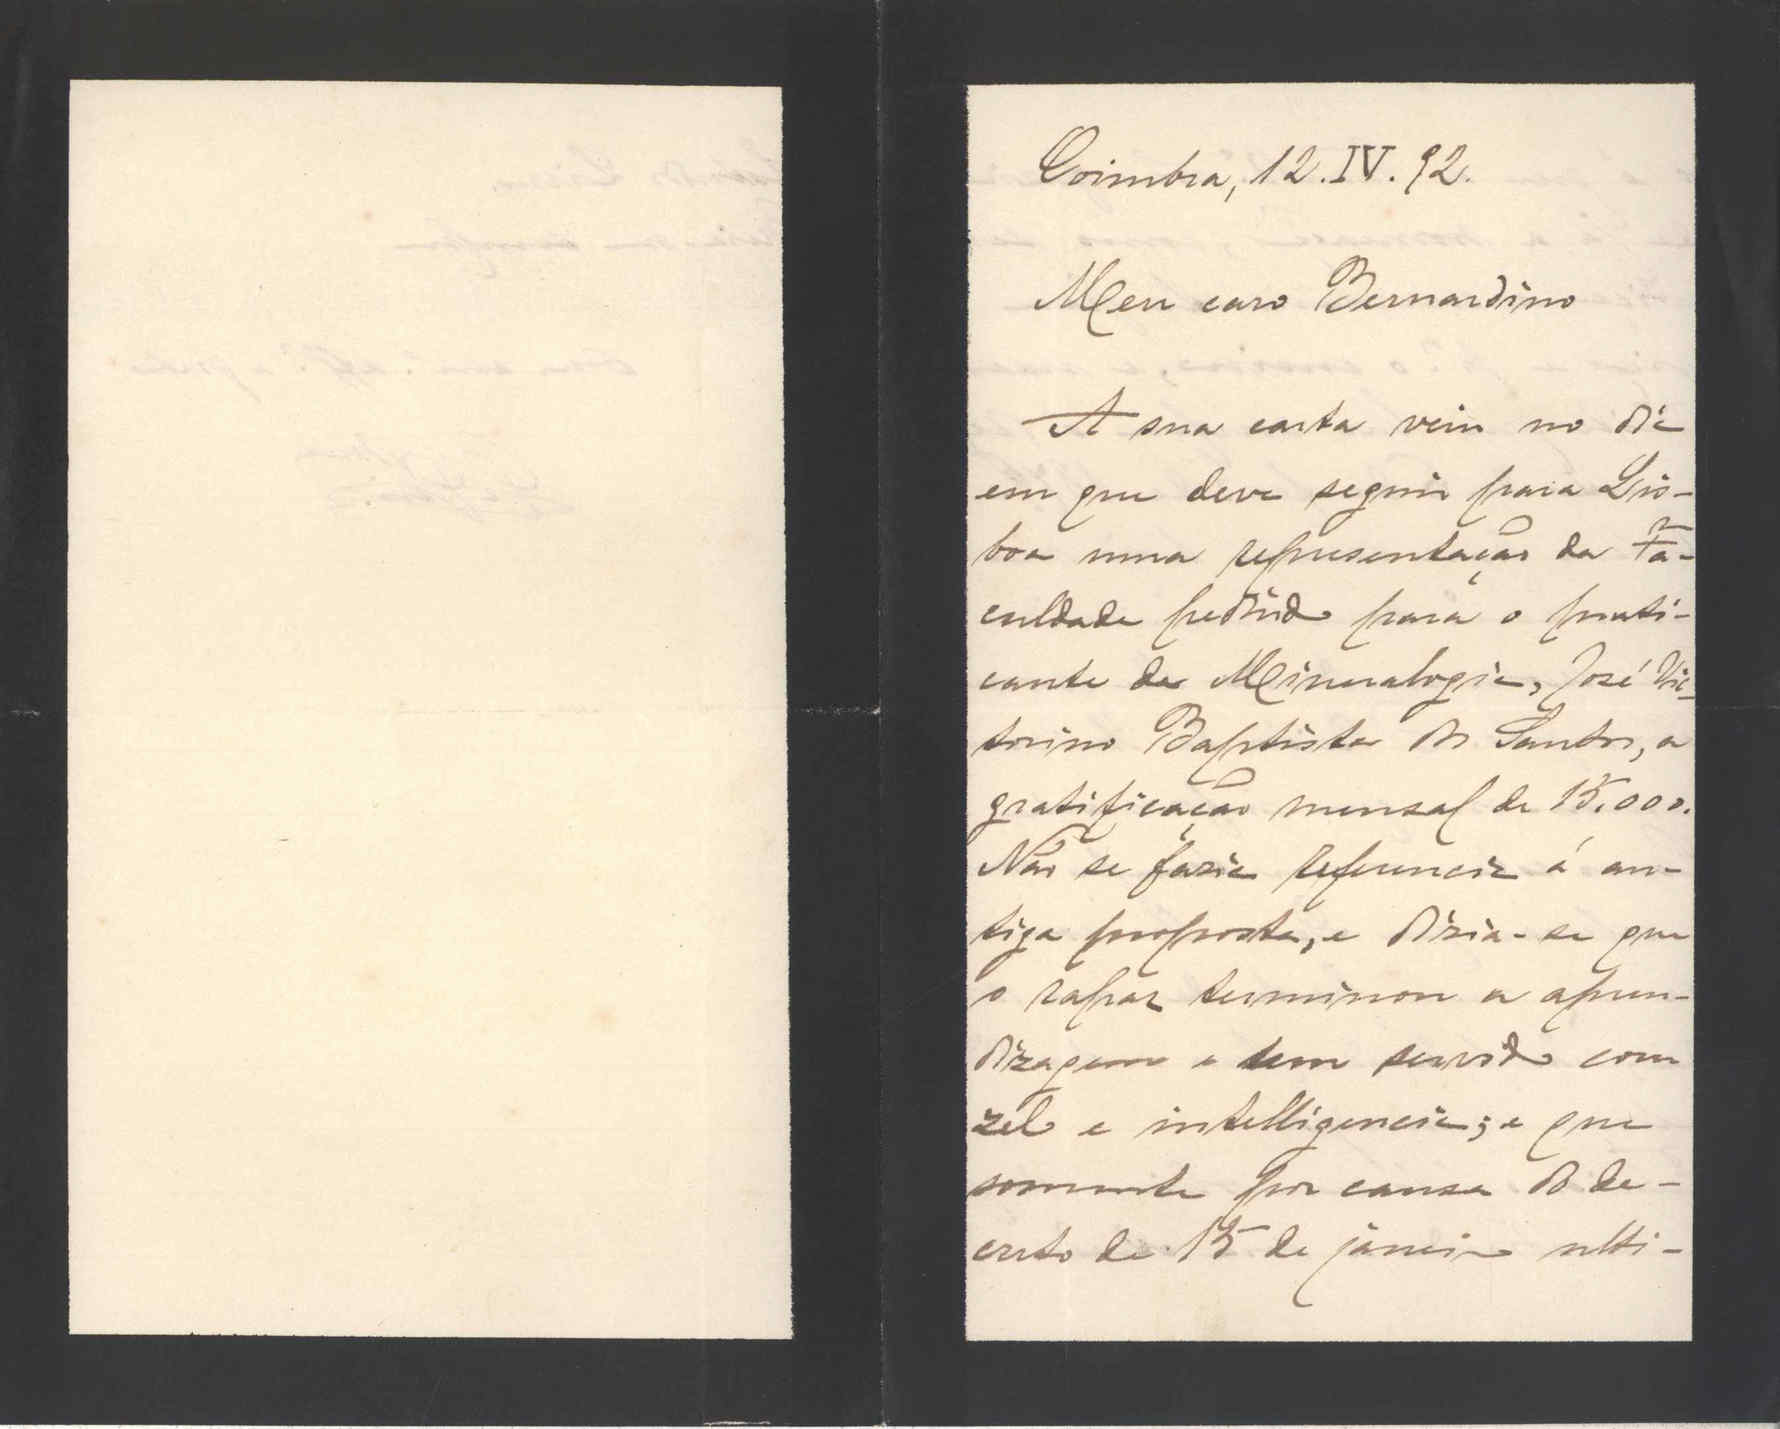 Coimbra, 12.IV.92.
Meu caro Bernardino
A sua carta veiu no dia
em que deve seguir para Lis-
boa uma representação da Fa-
culdade pedindo para o prati-
cante de Mineralogia, José Vic-
torino Baptista dos Santos, a
gratificação mensal de 15.000.
Não se fazia referencia á an-
tiga proposta, e dizia-se que
o rapaz terminou a apren-
dizagem e tem servido com
zelo e intelligencia; e que
somente por causa do de-
creto de 15 de janeiro ulti-